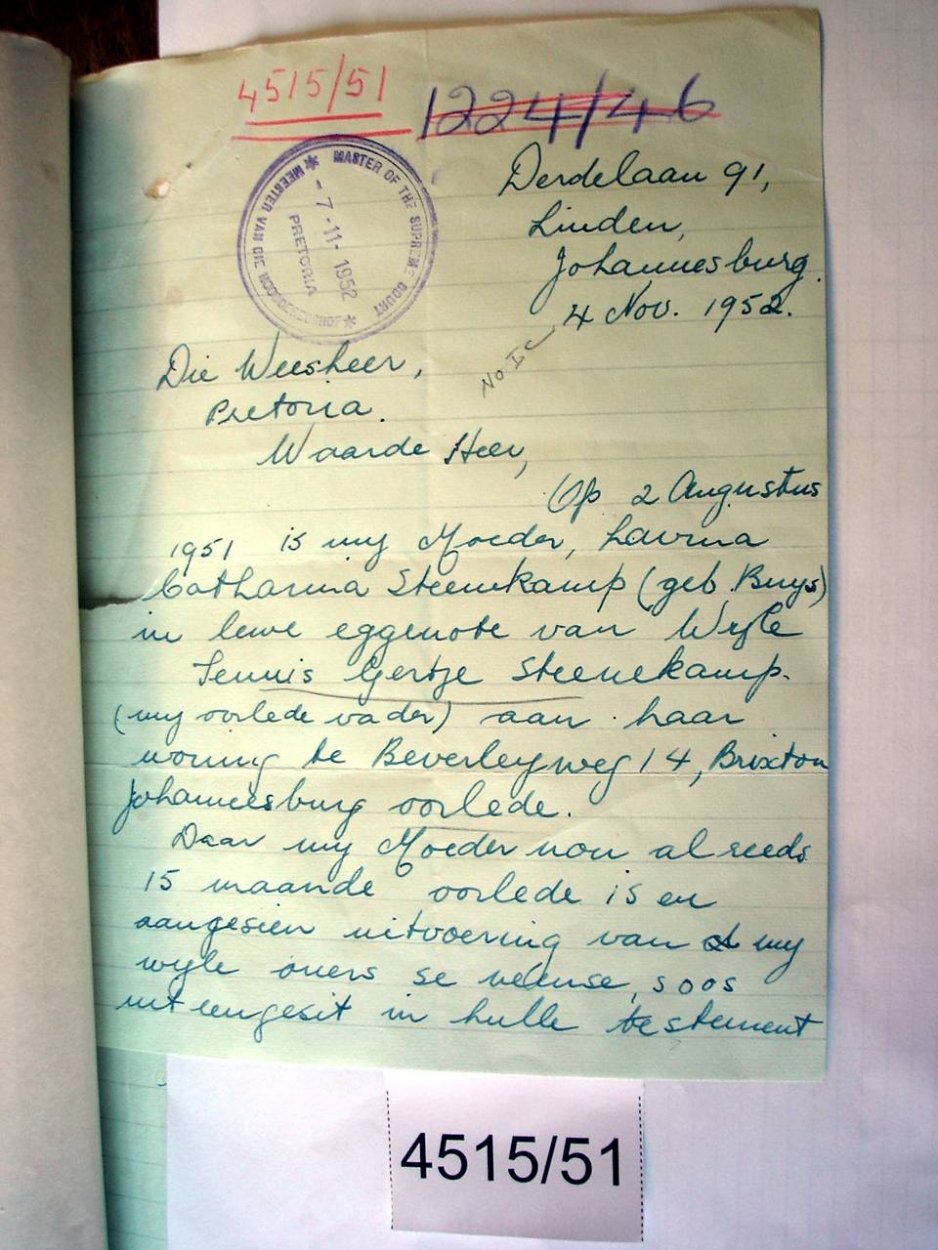 4515/51
1224/46
MASTER OF THE SUPREME COURT
MEESTER VAN DIE HOOGGEREGSHOF
-7-11-1952
PRETORIA
Derdelaan 91,
Linden,
Johannesburg.
4 Nov. 1952.
No I C
Die Weesheer,
Pretoria.
Waarde Heer,
Op 2 Augustus
1951 is my Moeder, Lavina
Catharina Steenekamp (geb Buys)
in lewe eggenote van Wyle
Teunis Gertse Steenekamp.
(my oorlede vader) aan haar
woning te Beverleyweg 14, Brixton
Johannesburg oorlede.
Daar my Moeder nou alreeds
15 maande oorlede is en
aangesien uitvoering van my
wyle ouers se wense, soos
uiteengesit in hulle testement
4515/51